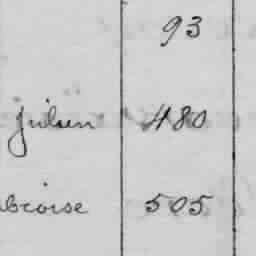 93
Julien 480
broise 505